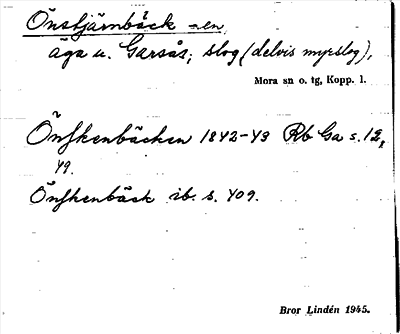 Önstjärnbäck -en
äga u. Garsås; slog (delvis myrslog),
Mora sn o. tg, Kopp. l.
Önskenbäcken 1842-43 Rb Ga s. 12,
49.
Önskenbäck ib. s. 409.
Bror Lindén 1945.